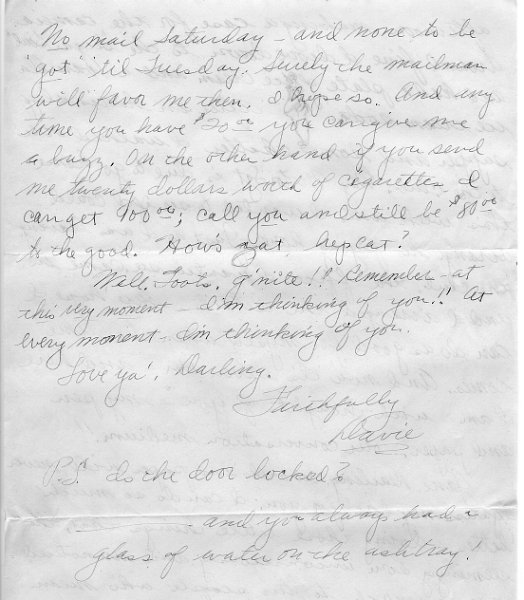 No mail Saturday - and none to be
"got" 'til Tuesday. Surely the mailman
will favor me then. I hope so. And any
time you have $20.00 you can give me
a buzz. On the other hand if you send
me twenty dollars worth of cigarettes I
can get 100.00; call you and still be $80.00
to the good. How's zat, hepcat?
Well, Toots, g'nite!! Remember - at
this very moment - I'm thinking of you!! At
every moment - I'm thinking of you.
Love ya', Darling.
Faithfully
Davie
P.S. Is the door locked?
and you always had a
glass of water on the ashtray!